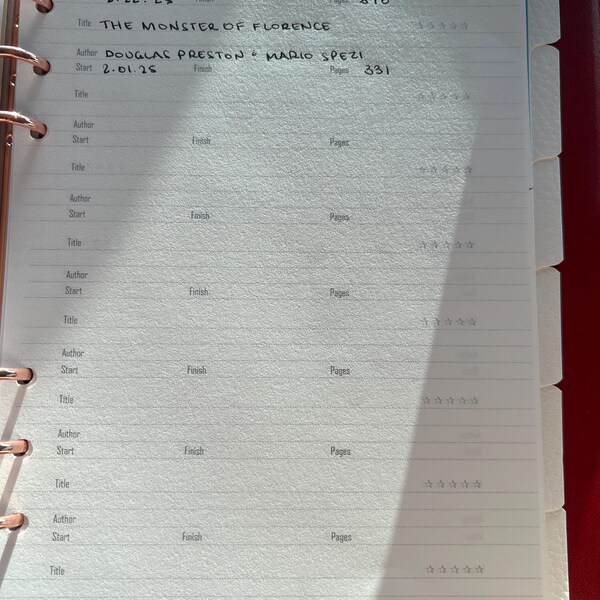 Title THE MONSTER OF FLORENCE ☆☆☆☆☆
Author DOUGLAS PRESTON + MARIO SPEZI
Start 2.01.25 Finish Pages 331
Title ☆☆☆☆☆
Author
Start Finish Pages
Title ☆☆☆☆☆
Author
Start Finish Pages
Title ☆☆☆☆☆
Author
Start Finish Pages
Title ☆☆☆☆☆
Author
Start Finish Pages
Title ☆☆☆☆☆
Author
Start Finish Pages
Title ☆☆☆☆☆
Author
Start Finish Pages
Title ☆☆☆☆☆